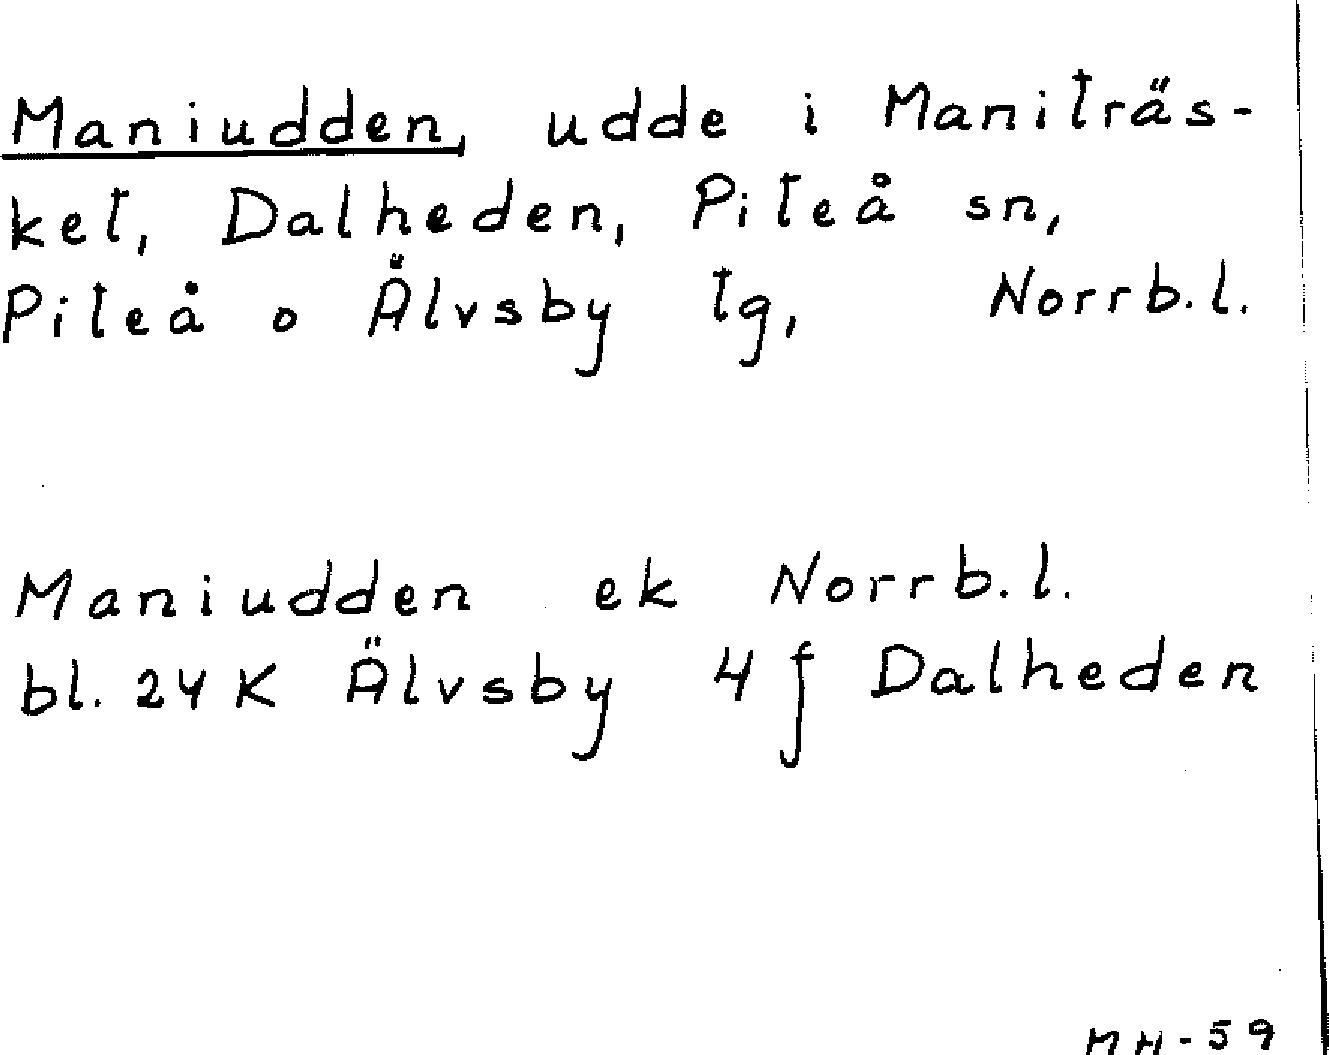 Maniudden, udde i Maniträs-
ket, Dalheden, Piteå sn,
Piteå o Älvsby tg, Norrb.l.
Maniudden ek Norrb.l.
bl. 24 K Älvsby 4 f Dalheden
MH-59